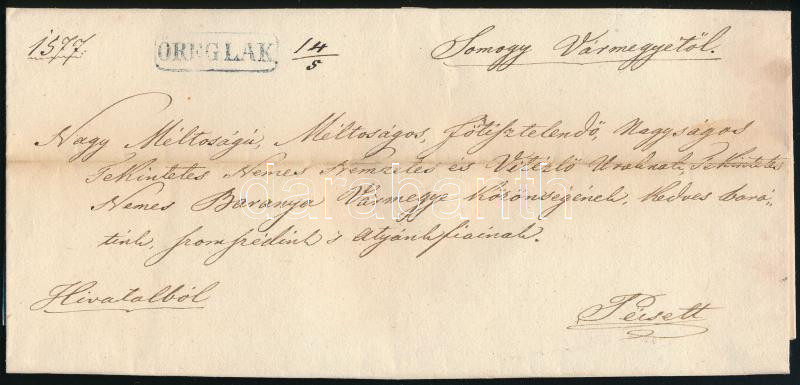 1577.
ÖREGLAK
14/5
Somogy Vármegyétől.
Nagy Méltoságú, Méltoságos, Főtisztelendő, Nagyságos
Tekintetes Nemes Nemzetes és Vitézlő Uraknak, Tekintetes
Nemes Baranya Vármegye Közönségének, kedves bará-
tink, szomszédink s Atyánkfiainak.
Hivatalból
Pécsett
darabanth